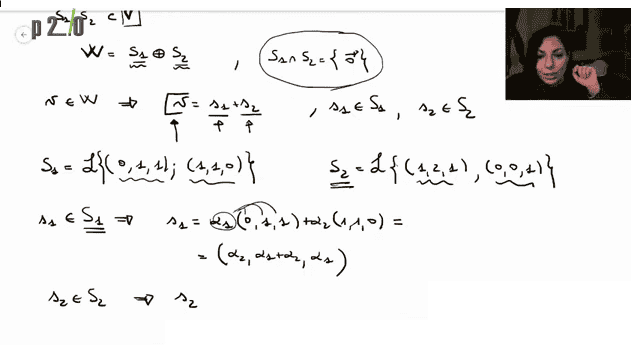 S₁, S₂ ⊂ V
p2_/0
W = S₁ ⊕ S₂ , S₁ ∩ S₂ = { 0⃗ }
v ∈ W ⇒ v = s₁ + s₂ , s₁ ∈ S₁ , s₂ ∈ S₂
S₁ = L{(0,1,1); (1,1,0)} S₂ = L{(1,2,1), (0,0,1)}
s₁ ∈ S₁ ⇒ s₁ = α₁(0,1,1) + α₂(1,1,0) =
= (α₂, α₁+α₂, α₁)
s₂ ∈ S₂ ⇒ s₂